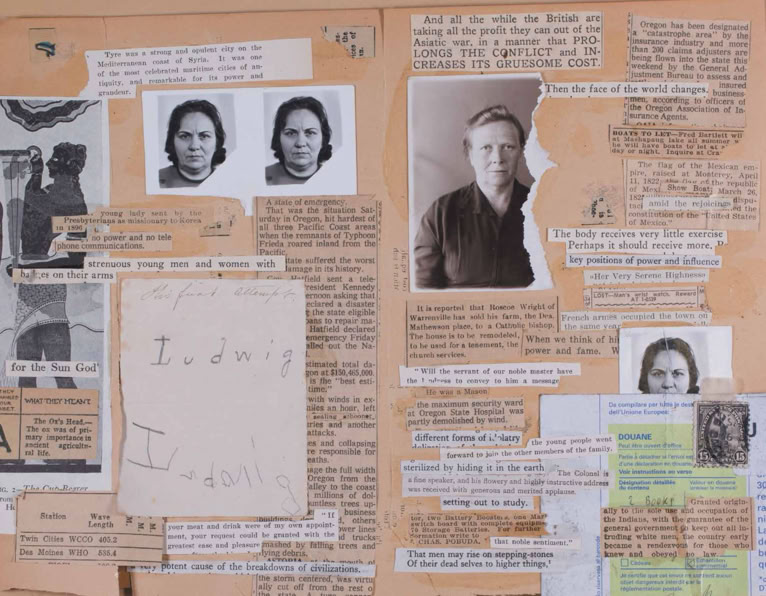 Tyre was a strong and opulent city on the
Mediterranean coast of Syria. It was one
of the most celebrated maritime cities of an-
tiquity, and remarkable for its power and
grandeur.
young lady sent by the
Presbyterians as missionary to Korea
in 1896
no power and no tele
phone communications.
strenuous young men and women with
on their arms
for the Sun God'
WHAT THEY MEANT.
The Ox's Head.—
The ox was of pri-
mary importance in
ancient agricultu-
ral life.
FIG. 2.—The Cup-Bearer
Station Wave
Length
Twin Cities WCCO 405.2
Des Moines WHO 535.4
his first attempt
Iudwig
A state of emergency.
That was the situation Sat-
urday in Oregon, hit hardest of
all three Pacific Coast areas
when the remnants of Typhoon
Frieda roared inland from the
Pacific.
state suffered the worst
damage in its history.
Hatfield sent a tele-
President Kennedy
ernoon asking that
declared a disaster
the state eligible
ans to repair
Hatfield declared
emergency Friday
called out the Na-
timated total da-
gon at $150,465,000.
is the "best esti-
time."
with winds in ex-
miles an hour, left
ries and another
attacks.
es and collapsing
re responsible for
eaths.
age the full width
Oregon from the
alley to the coast
millions of dol-
untless trees up-
business
others
ower lines
trucks
smashed by falling trees and
flying debris.
"If
your meat and drink were of my own appoint-
ment, your request could be granted with the
greatest ease and pleasure
very potent cause of the breakdowns of civilizations.
the storm centered, was virtu-
ally cut off from the rest of
And all the while the British are
taking all the profit they can out of the
Asiatic war, in a manner that PRO-
LONGS THE CONFLICT and IN-
CREASES ITS GRUESOME COST.
Then the face of the world changes.
Oregon has been designated
a "catastrophe area" by the
insurance industry and more
than 200 claims adjusters are
being flown into the state
this weekend by the General Ad-
justment Bureau to assess and
insured
business-
men, according to officers of
the Oregon Association of In-
surance Agents.
BOATS TO LET—Fred Bartlett wi
at Mashapaug lake all summer
he will have boats to let at
day or night. Inquire at Cra-
The flag of the Mexican em-
pire, raised at Monterey, April
11, 1822, the flag of the republic
of Mexi Show Boat March 26,
182
amid the rejoicings
constitution of the "United States
of Mexico."
The body receives very little exercise
Perhaps it should receive more,
key positions of power and influence
»Her Very Serene Highness«
LOST—Men's wrist watch. Reward
French armies occupied the town on
the same year
It is reported that Roscoe Wright of
Warrenville has sold his farm, the Dea.
Mathewson place, to a Catholic bishop.
The house is to be remodeled,
to be used for a tenement, the
church services.
When we think of hi
power and fame. W
"Will the servant of our noble master have
the kindness to convey to him a message
He was a Mason
the maximum security ward
at Oregon State Hospital was
partly demolished by wind.
different forms of idolatry
the young people went
forward to join the other members of the family.
sterilized by hiding it in the earth
The Colonel is
a fine speaker, and his flowery and highly instructive address
was received with generous and merited applause.
setting out to study.
tor, two Battery Boosters, one Mar
switch board with complete equipm
70 Storage Batteries. For Further
formation write to
CHAS. POBUDA,
that noble sentiment."
That men may rise on stepping-stones
Of their dead selves to higher things,'
de l'Union Europee:
DOUANE
Peut être ouvert d'office
Voir instructions au verso
Désignation détaillée
du contenu
2 BOOKS
15 15
Granted origin-
ally to the sole use and occupation of
the Indians, with the guarantee of the
general government to keep out all in-
truding white men, the country early
became a rendezvous for those who
knew and obeyed no law.
Cadeau